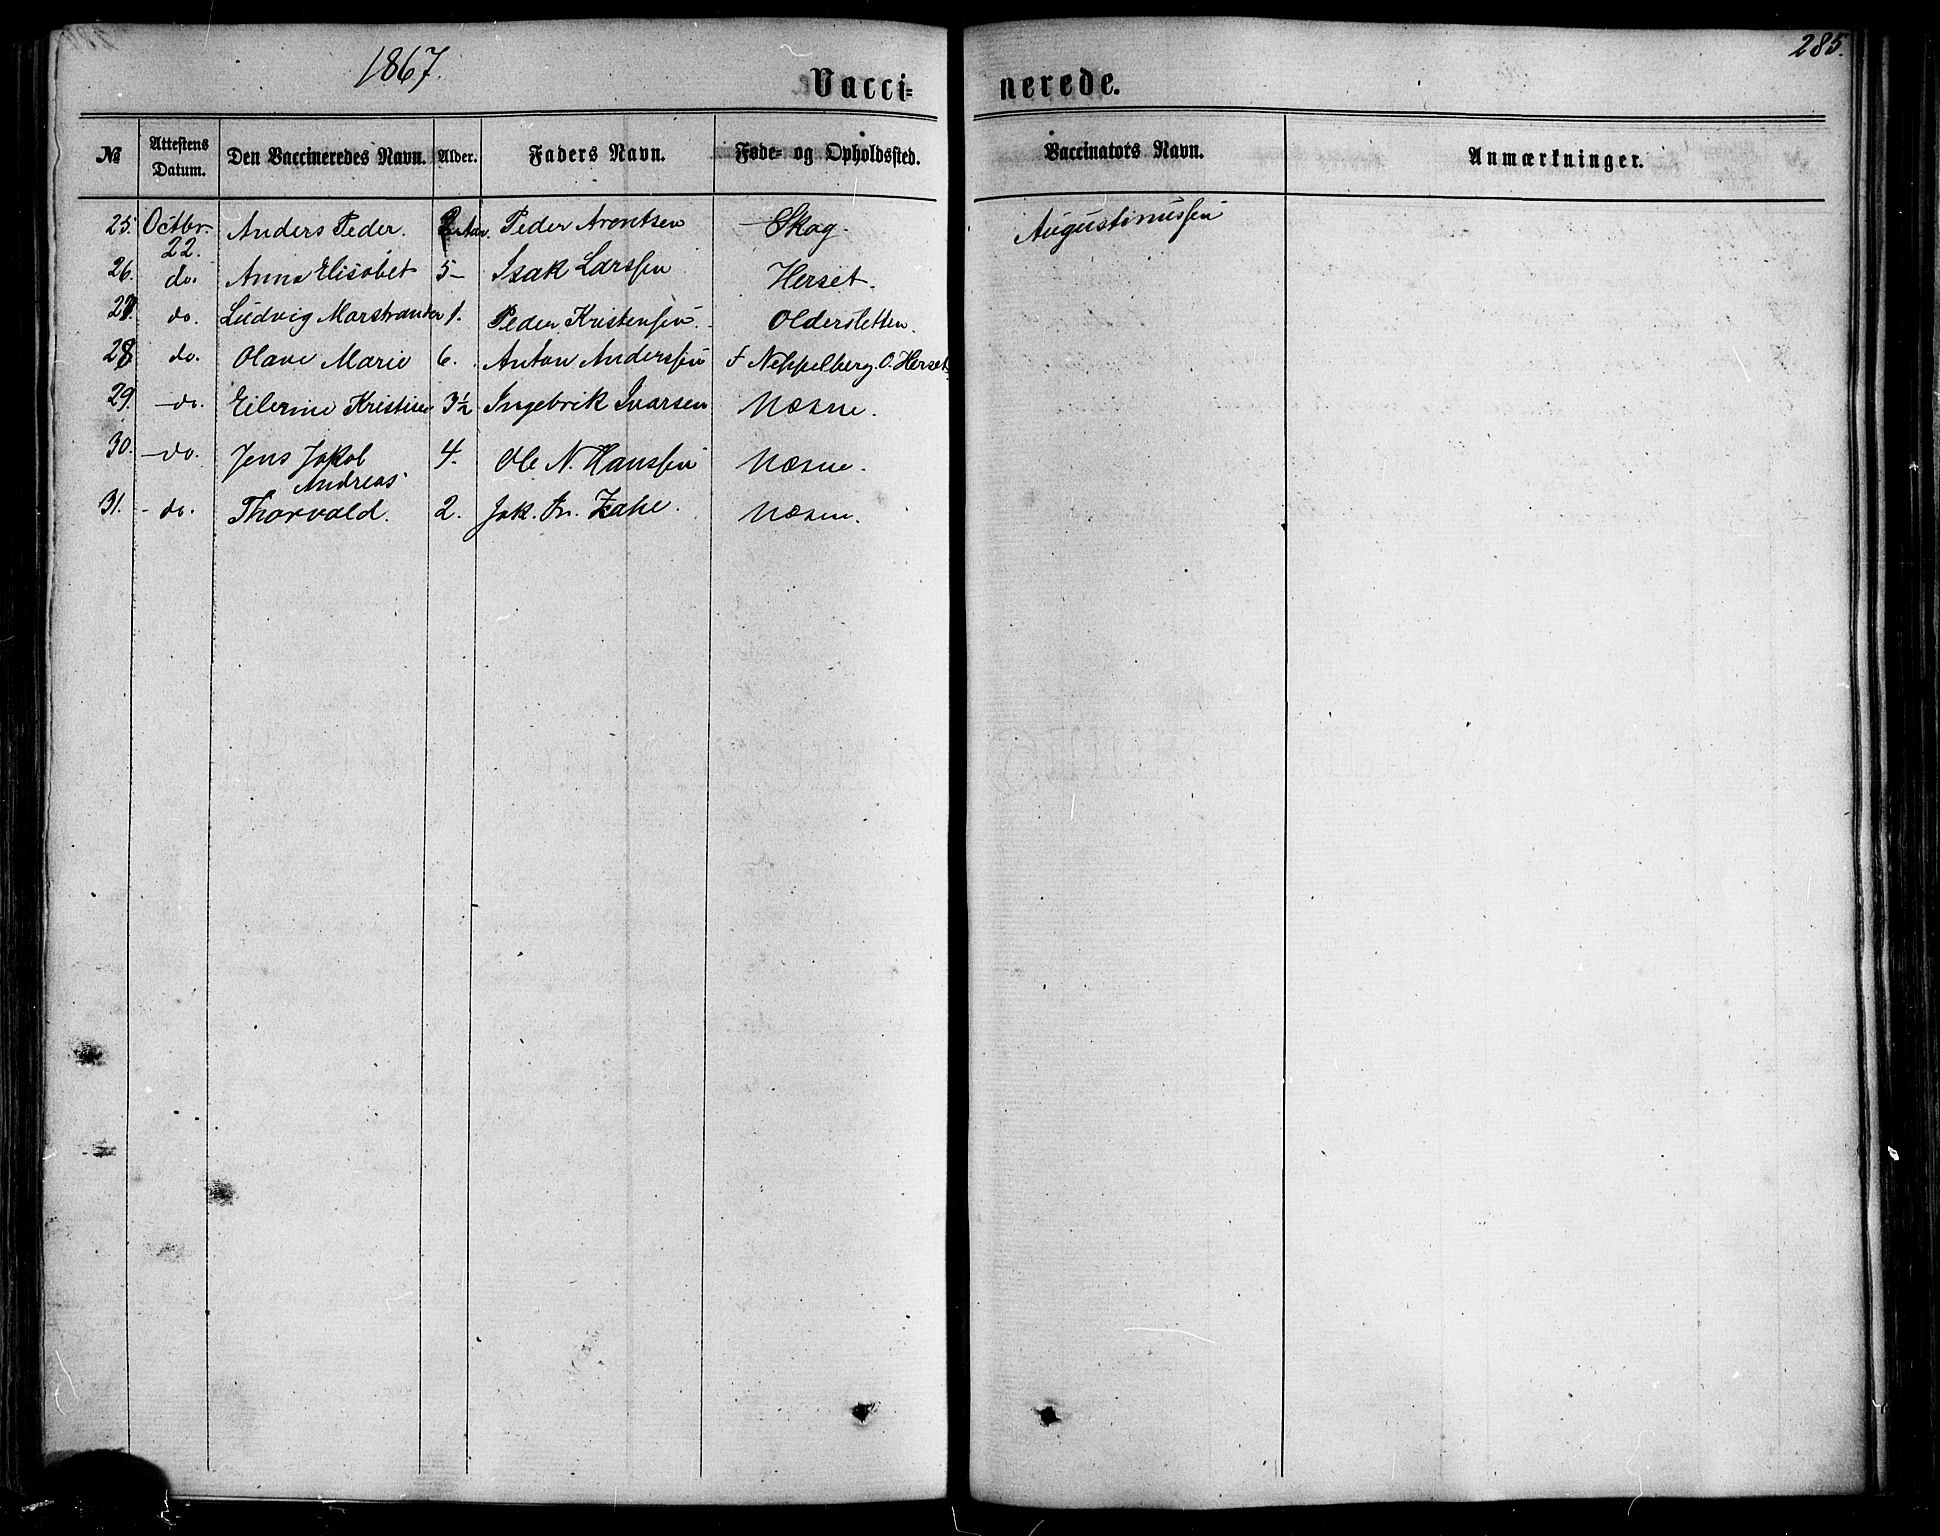 1867.
285.
Vacci= nerede.
№ Attestens Datum. Den Vaccineredes Navn. Alder. Faders Navn. Føde- og Opholdssted. Vaccinators Navn. Anmærkninger.
25. Octbr. 22. Anders Peder. Aar. Peder Arentsen Skog. Augustinussen
26. do. Anna Elisabet 5 – Isak Larssen Herset.
27. do. Ludvig Marstrander 1. Peder Kristensen. Oldersletten.
28 do. Olave Marie 6. Anton Anderssen F Neppelberg. O. Herset
29. – do. Eilerine Kristine 3½ Ingebrik Ivarsen Næsne.
30. – do. Jens Jakob Andreas 4. Ole N. Hanssen Næsne.
31. – do. Thorvald. 2. Jak. Fr. Zahl. Næsne.